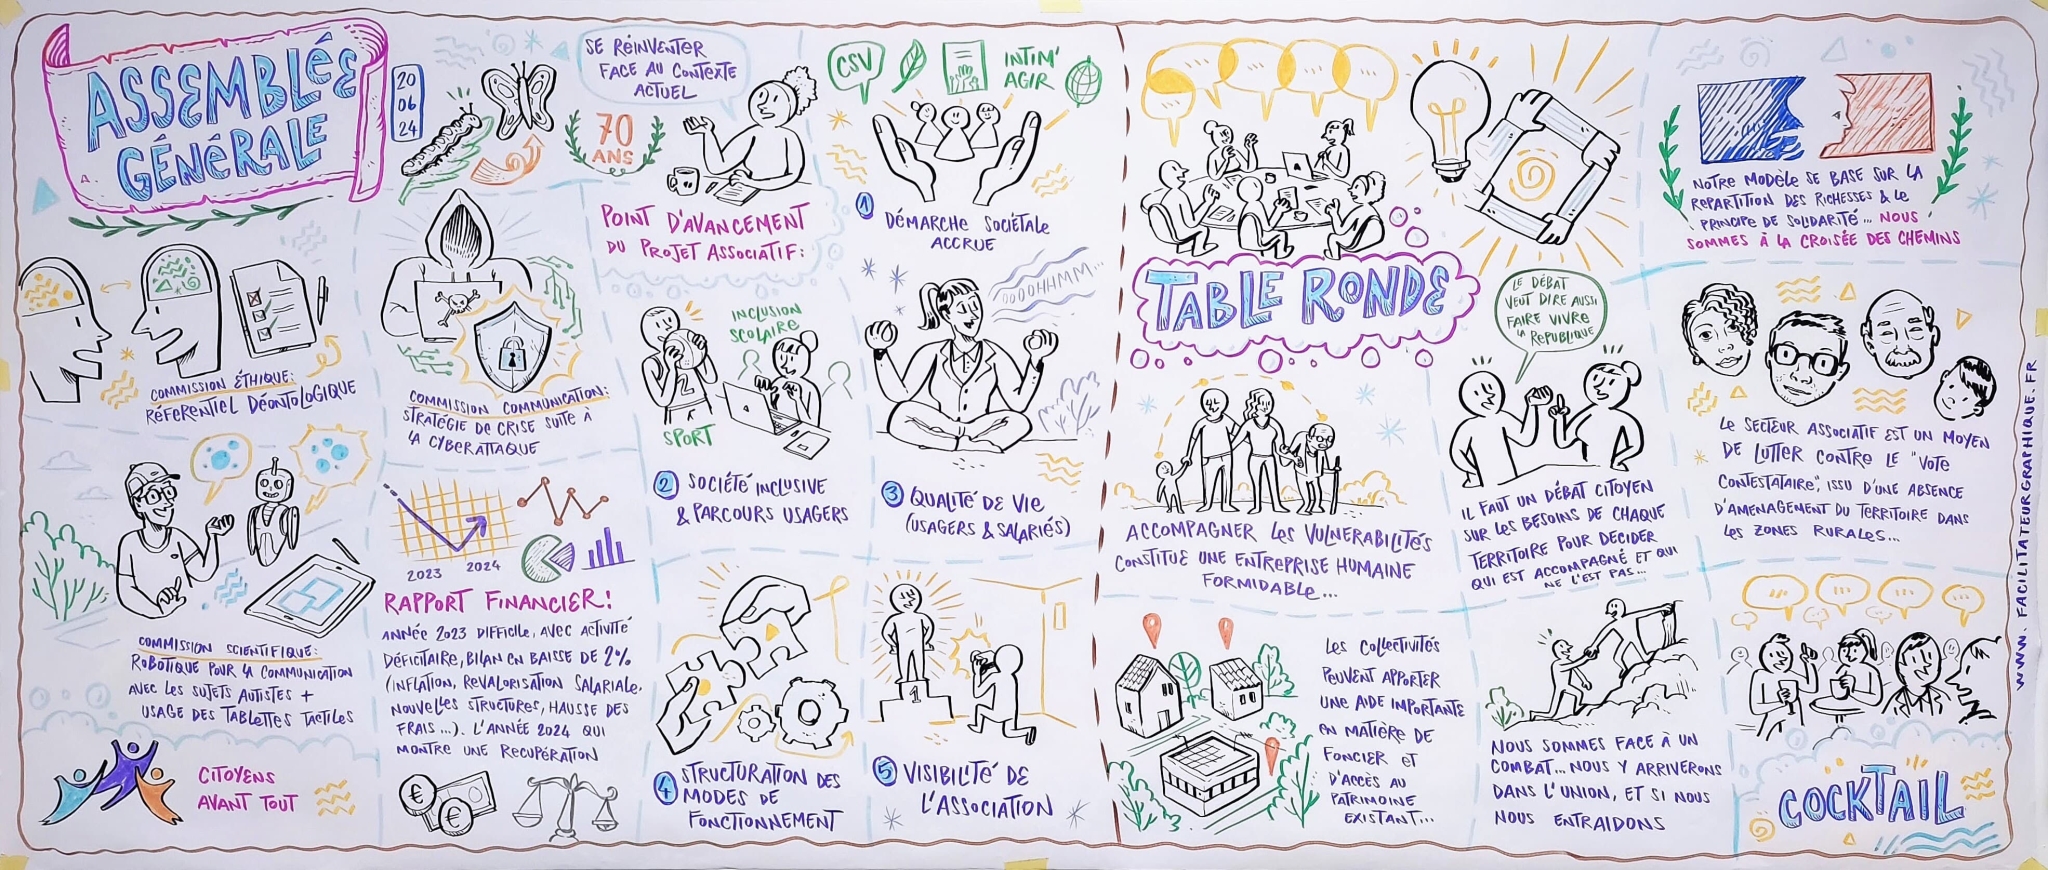 ASSEMBLÉE
GÉNÉRALE
20
06
24
COMMISSION ÉTHIQUE:
RÉFERENTIEL DÉONTOLOGIQUE
COMMISSION COMMUNICATION:
STRATÉGIE DE CRISE SUITE À
LA CYBERATTAQUE
COMMISSION SCIENTIFIQUE:
ROBOTIQUE POUR LA COMMUNICATION
AVEC LES SUJETS AUTISTES +
USAGE DES TABLETTES TACTILES
CITOYENS
AVANT TOUT
2023
2024
RAPPORT FINANCIER!
ANNÉE 2023 DIFFICILE, AVEC ACTIVITÉ
DÉFICITAIRE, BILAN EN BAISSE DE 2%
(INFLATION, REVALORISATION SALARIALE,
NOUVELLES STRUCTURES, HAUSSE DES
FRAIS...). L'ANNÉE 2024 QUI
MONTRE UNE RECUPÉRATION
€
€
70
ANS
SE RÉINVENTER
FACE AU CONTEXTE
ACTUEL
POINT D'AVANCEMENT
DU PROJET ASSOCIATIF:
CSV
INTIM'
AGIR
1 DÉMARCHE SOCIÉTALE
ACCRUE
INCLUSION
SCOLAIRE
SPORT
2 SOCIÉTÉ INCLUSIVE
& PARCOURS USAGERS
OOOOHHMM...
3 QUALITÉ DE VIE
(USAGERS & SALARIÉS)
4 STRUCTURATION DES
MODES DE
FONCTIONNEMENT
1
5 VISIBILITÉ DE
L'ASSOCIATION
TABLE RONDE
ACCOMPAGNER LES VULNERABILITÉS
CONSTITUE UNE ENTREPRISE HUMAINE
FORMIDABLE...
LE DÉBAT
VEUT DIRE AUSSI
FAIRE VIVRE
LA REPUBLIQUE
IL FAUT UN DÉBAT CITOYEN
SUR LES BESOINS DE CHAQUE
TERRITOIRE POUR DECIDER
QUI EST ACCOMPAGNÉ ET QUI
NE L'EST PAS...
NOTRE MODÈLE SE BASE SUR LA
REPARTITION DES RICHESSES & LE
PRINCIPE DE SOLIDARITÉ... NOUS
SOMMES À LA CROISÉE DES CHEMINS
LE SECTEUR ASSOCIATIF EST UN MOYEN
DE LUTTER CONTRE LE "VOTE
CONTESTATAIRE", ISSU D'UNE ABSENCE
D'AMENAGEMENT DU TERRITOIRE DANS
LES ZONES RURALES...
LES COLLECTIVITÉS
PEUVENT APPORTER
UNE AIDE IMPORTANTE
EN MATIÈRE DE
FONCIER ET
D'ACCÈS AU
PATRIMOINE
EXISTANT...
NOUS SOMMES FACE À UN
COMBAT... NOUS Y ARRIVERONS
DANS L'UNION, ET SI NOUS
NOUS ENTRAIDONS
COCKTAIL
WWW.FACILITATEURGRAPHIQUE.FR